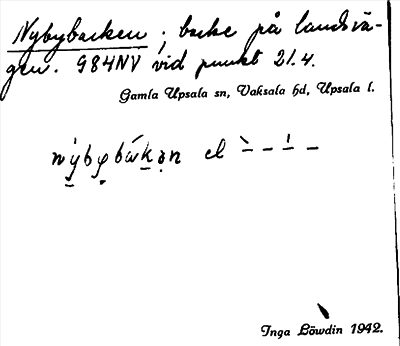 Nybybacken ; backe på landsvä-
gen. 984NV vid punkt 21.4.
Gamla Upsala sn, Vaksala hd, Upsala l.
el
Inga Löwdin 1942.